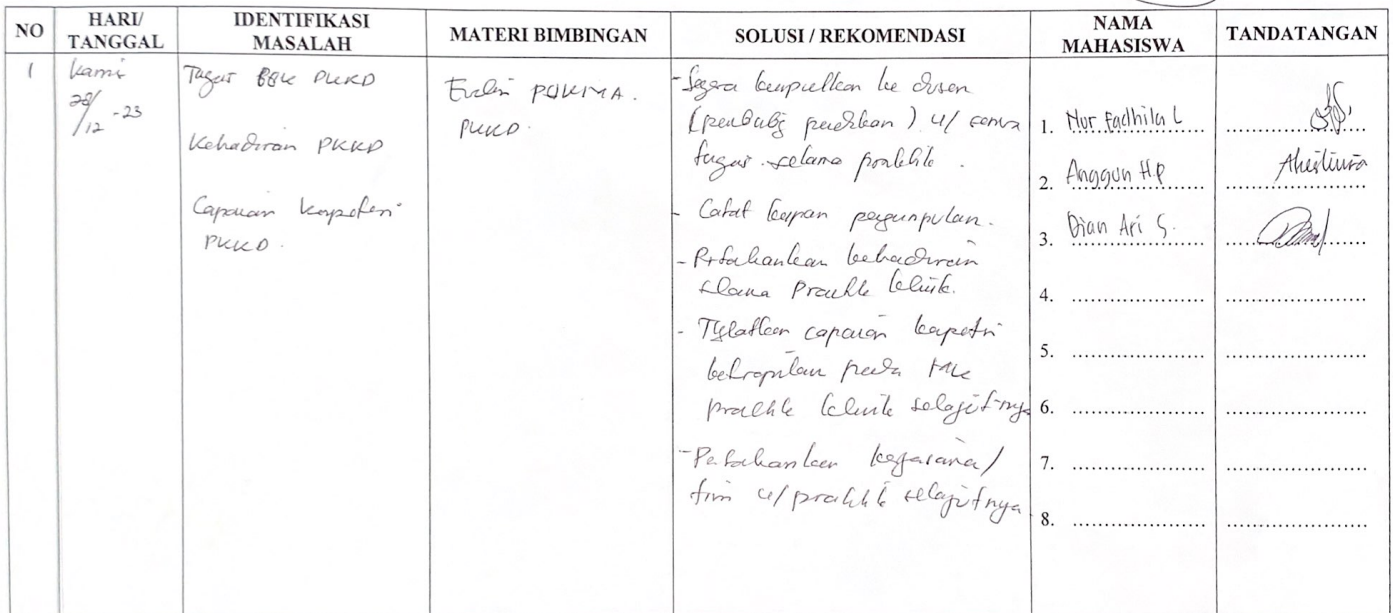 NO
HARI/
TANGGAL
IDENTIFIKASI
MASALAH
MATERI BIMBINGAN
SOLUSI / REKOMENDASI
NAMA
MAHASISWA
TANDATANGAN
1
Kamis
28/12 -23
Tugas PKKD
Kehadiran PKKD
Capaian kompetensi
PKKD.
PKKD.
- Segera kumpulkan ke dosen
u/ semua
tugas selama praktik.
- Catat kapan pengumpulan.
- Pertahankan kehadiran
selama Praktik klinik.
- Tingkatkan capaian kompetensi
ketrampilan pada
praktik klinik selanjutnya
- Pertahankan kerjasama/
tim u/ praktik selanjutnya
1. Nur Fadhila L
2. Anggun H.P
3. Dian Ari S.
4.
5.
6.
7.
8.